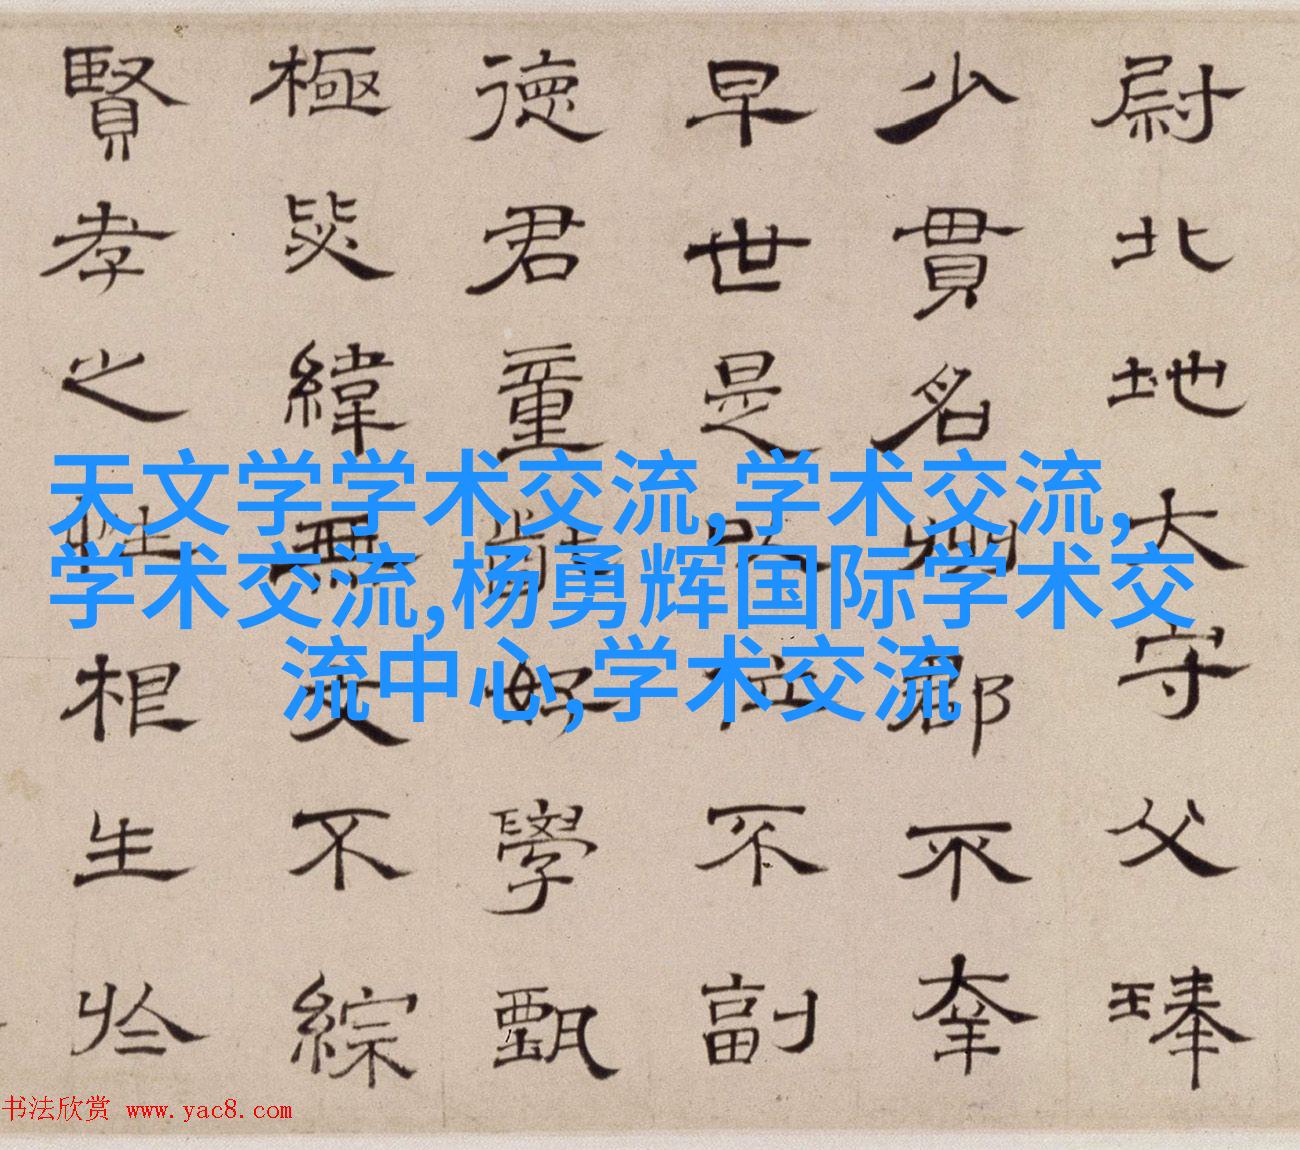 尉北地大守父琫
少貫名州郡不幸
早世是以位不副
德君童齔好學甄
極毖緯無文不綜
賢孝之性根生於
天文学学术交流,学术交流,
学术交流,杨勇辉国际学术交
流中心,学术交流
书法欣赏 www.yac8.com